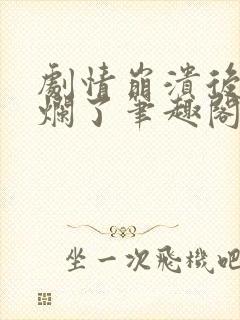 劇情崩潰後
爛了筆趣閣
坐一次飛機吧